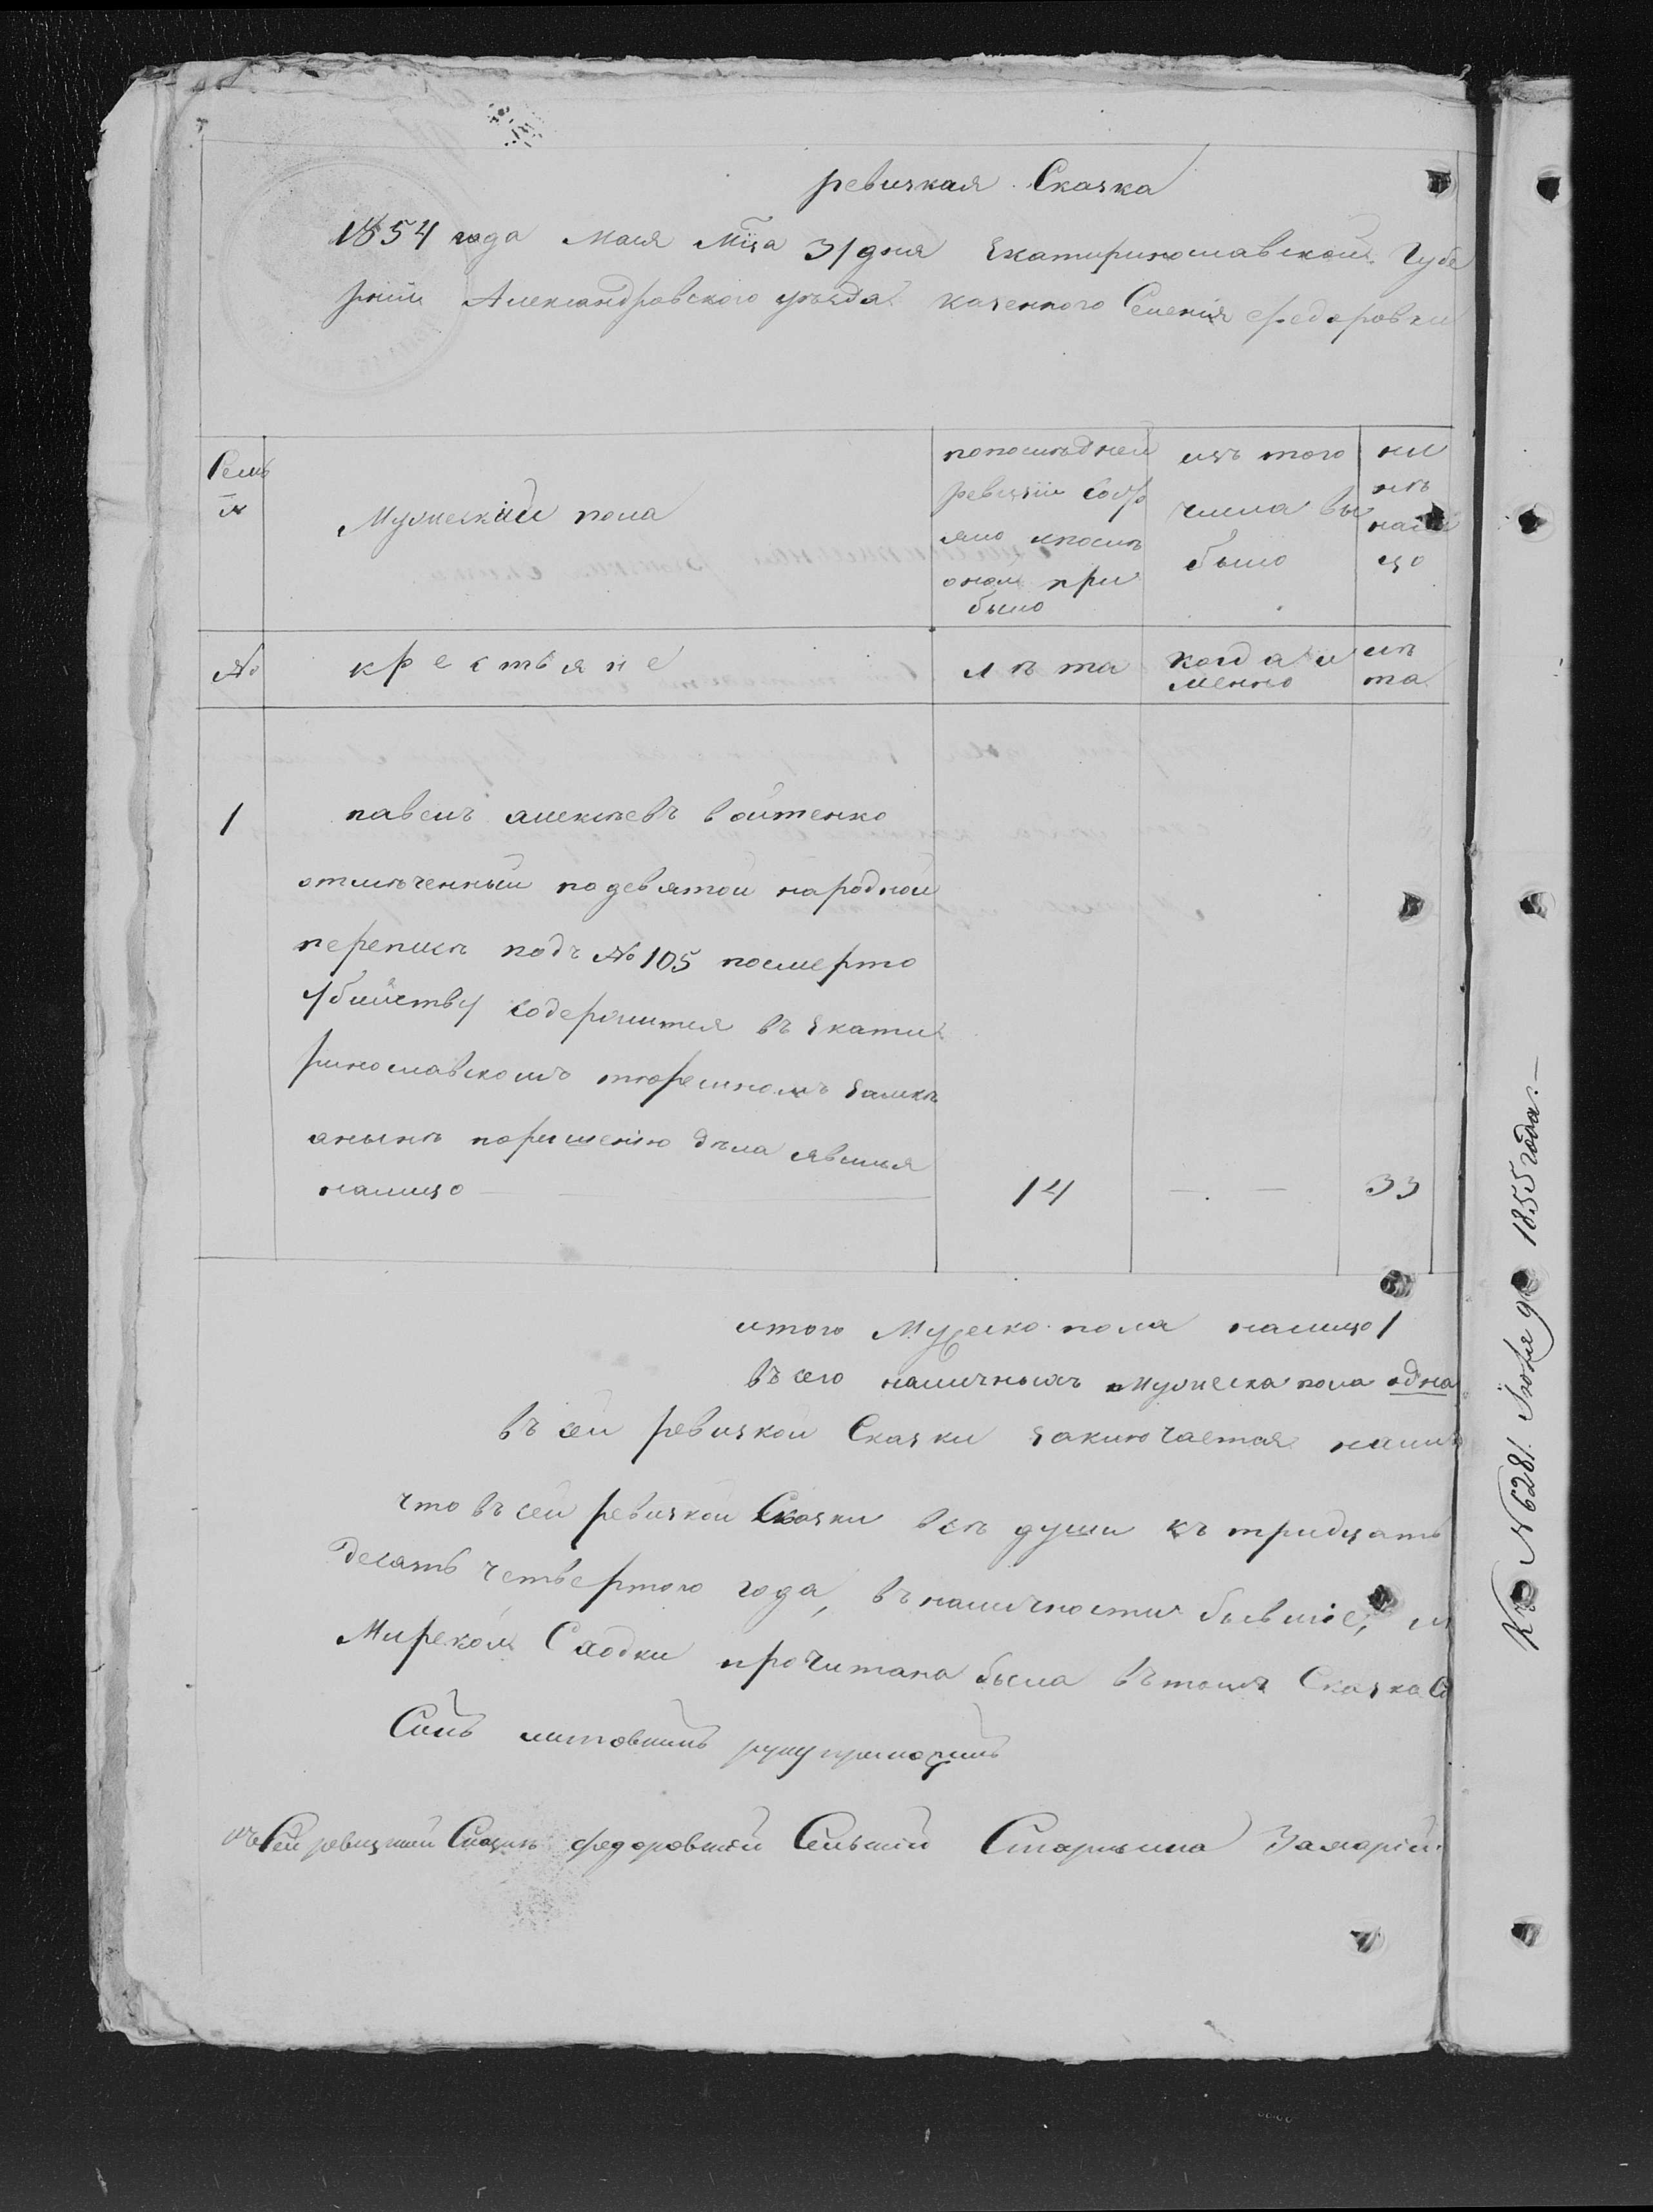 ревизкая Сказка
1854 года Мая Мца 31 дня Екатиринославской Губе
рнии Александровского уезда казенного Селения Федоровки
Семь
и
Мужескии пола
попоследнеи
ревизии состо
яло ипосле
оной при
было
изъ того
числа вы
было
ны
не
нали
цо
№
крестьяне
лета
когда и
менно
ле
та
1
павелъ алексеевъ войтенко
отмеченныи подевятои народнои
переписи подъ № 105 посмерто
убийству содержится въ Екати
ринославскомъ тюремномъ Замке
аныне порешению дела явился
налицо
14
33
итого Мужеско пола налицо 1
въсего наличныхъ мужеска пола одна
въ сеи ревизкои Сказки заключается
что въ сеи ревизкои Сказки все души къ тридцать
десять четвертого года, въналичности бывшие,
Мирской Сходки прочитана была въ томъ Сказка
руку приложилъ
къ Сей ревизкой Сказке федоровский Сельский Старшина Захарий
Къ № 6281. Июня 9го 1855 года.